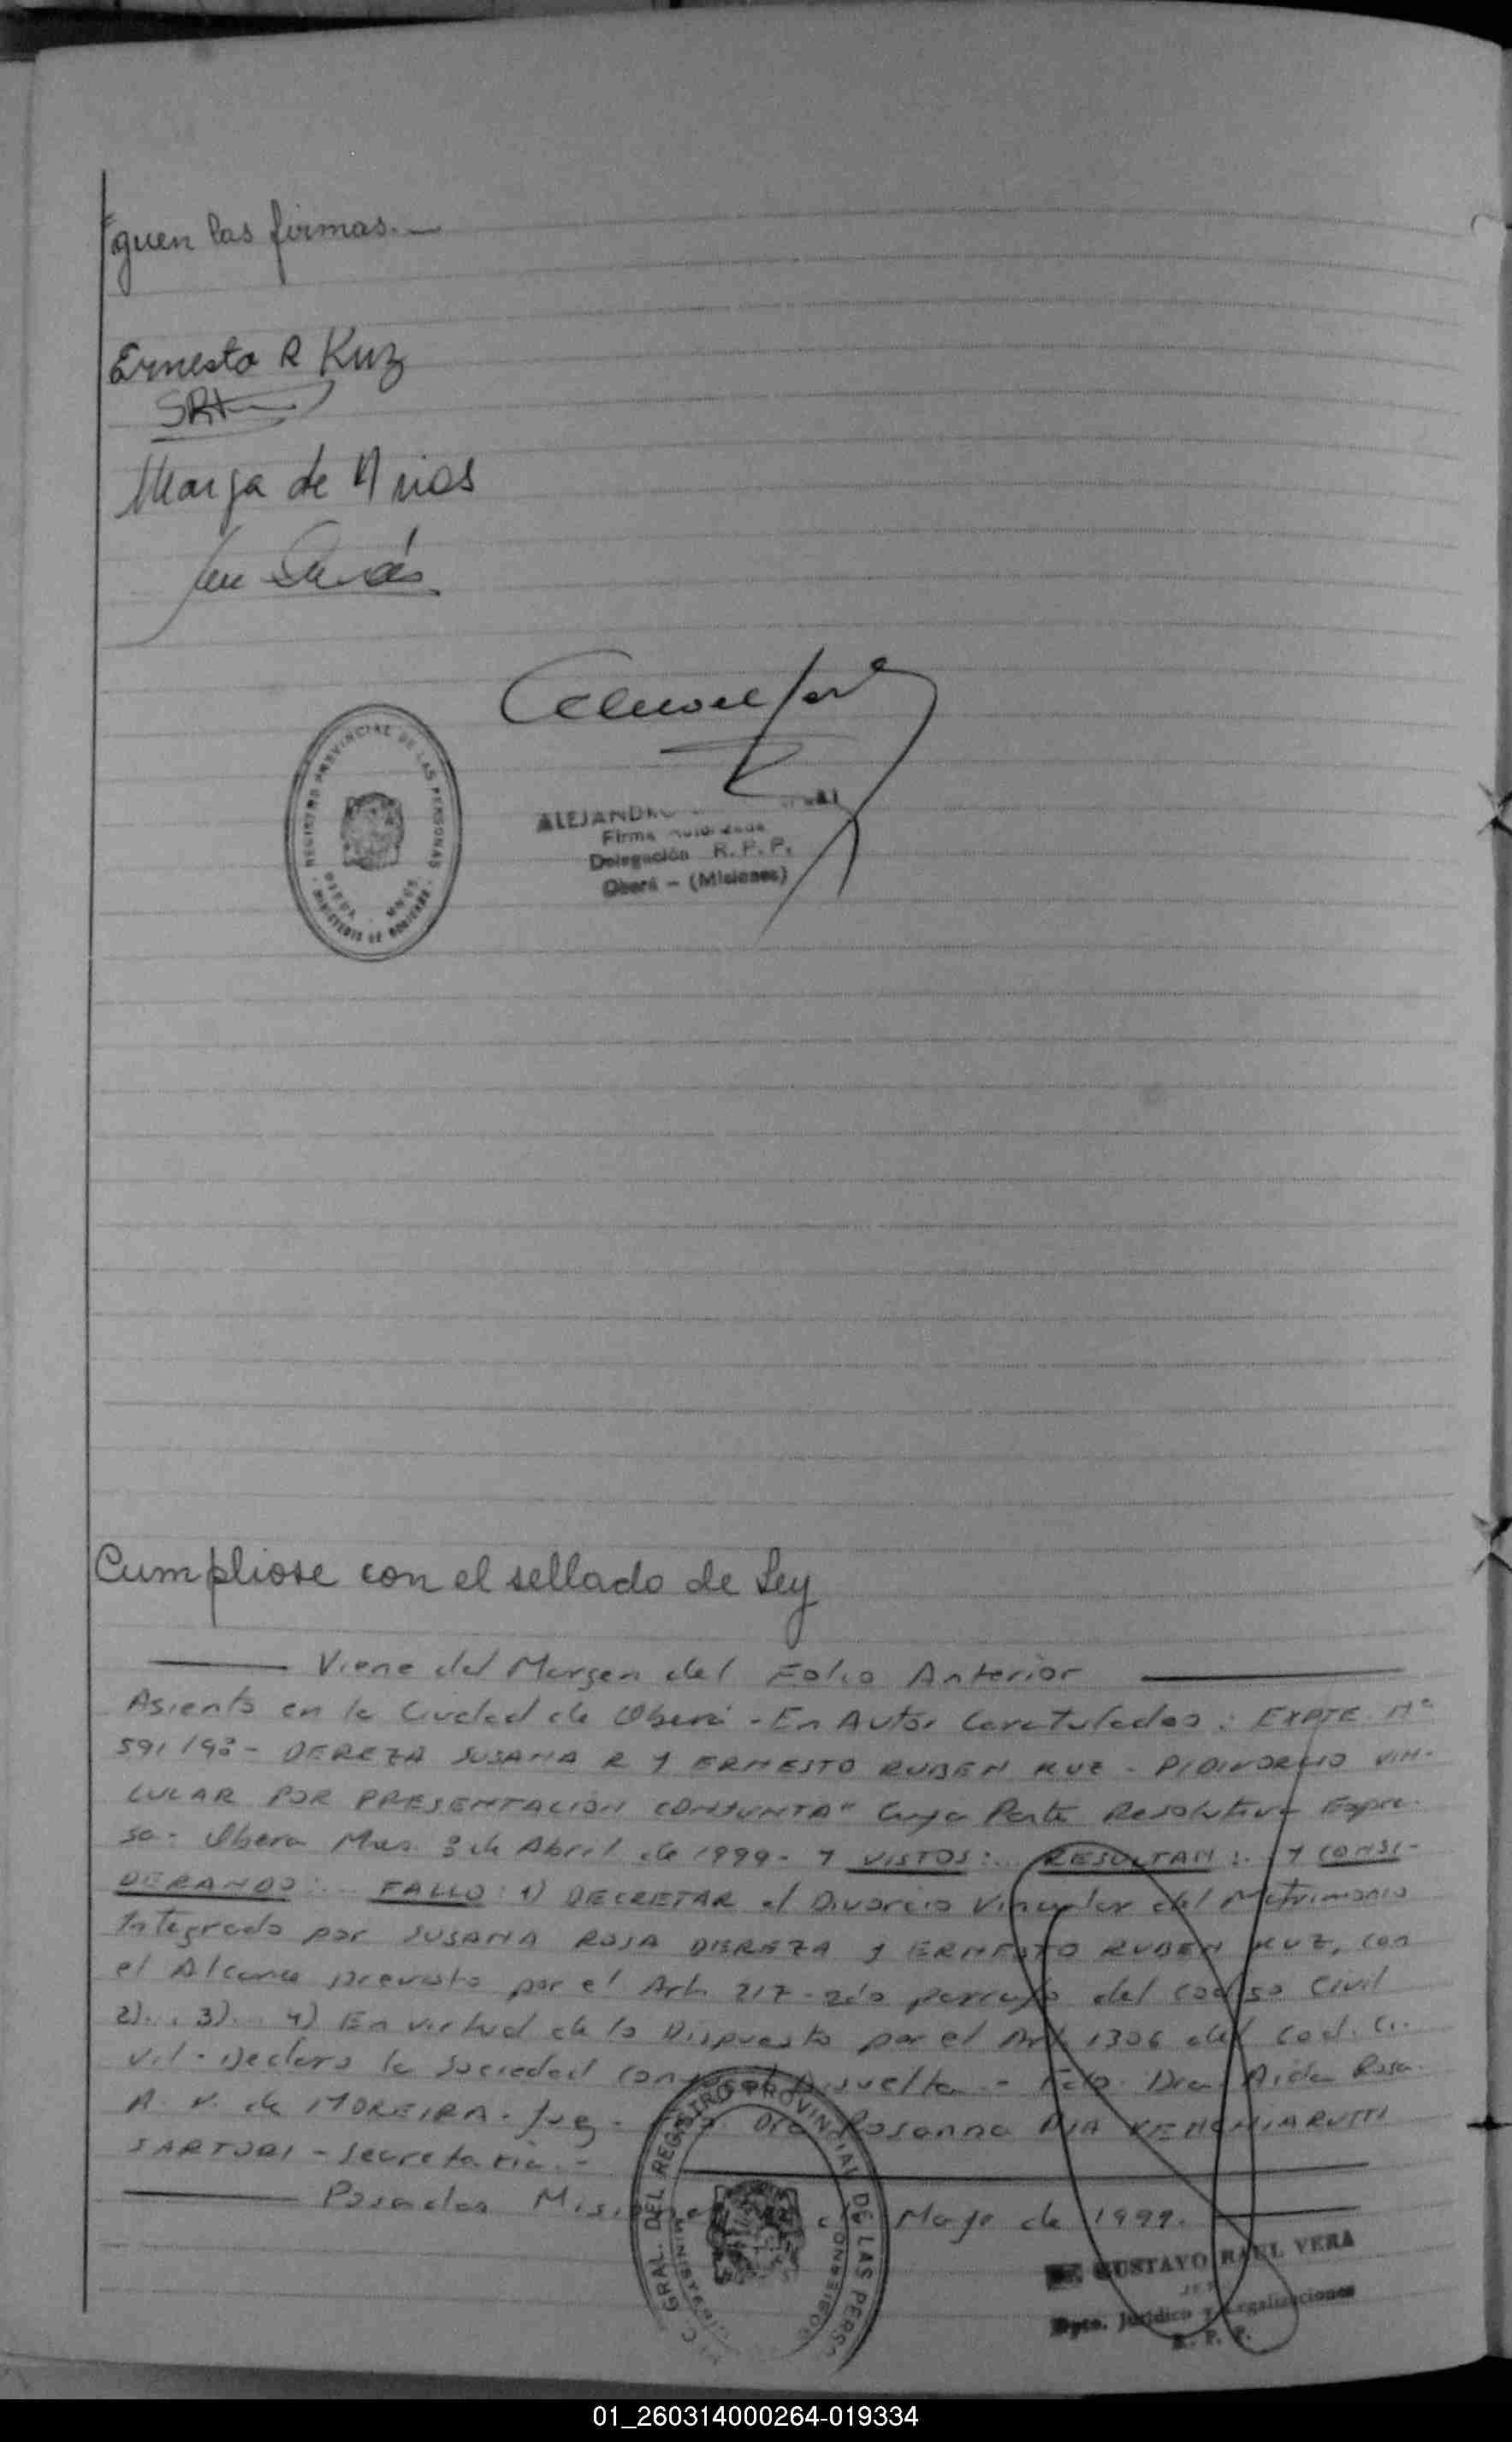 guen las firmas.—
Ernesto R Kuz
Marga de
REGISTRO PROVINCIAL DE LAS PERSONAS
MINISTERIO DE GOBIERNO
ALEJANDRO
Firma Autorizada
Delegación R. P. P.
Oberá - (Misiones)
Cumpliose con el sellado de Ley
Viene del Margen del Folio Anterior
Asiento en la Ciudad de Oberá - En Autos Caratulados: EXPTE. Nº
DEREZA SUSANA R Y ERNESTO RUBEN KUZ - P/DIVORCIO VIN-
CULAR POR PRESENTACION CONJUNTA" Cuya Parte Resolutiva Expre-
sa: Obera Mnes. de Abril de 1999 - Y VISTOS:... RESULTAN:.. Y CONSI-
DERANDO:... FALLO: 1) DECRETAR el Divorcio Vincular del Matrimonio
Integrado por SUSANA ROSA DEREZA y ERNESTO RUBEN KUZ, con
el Alcance previsto por el Art. 217 - 2do parrafo del Codigo Civil
2)... 3)... 4) En virtud de lo Dispuesto por el Art. 1306 del Cod. Ci-
vil - Declaro la Sociedad Conyugal Disuelta - Fdo. Dra Aida Rosa
A. V. de MOREIRA - Juez - Dra Rosanna PIA
SARTORI - Secretaria.-
Posadas Misiones de Mayo de 1999.
GRAL. DEL REGISTRO PROVINCIAL DE LAS PERS.
MINISTERIO
GUSTAVO RAUL VERA
JEFE
Dpto. Jurídico y Legalizaciones
R. P. P.
01_260314000264-019334